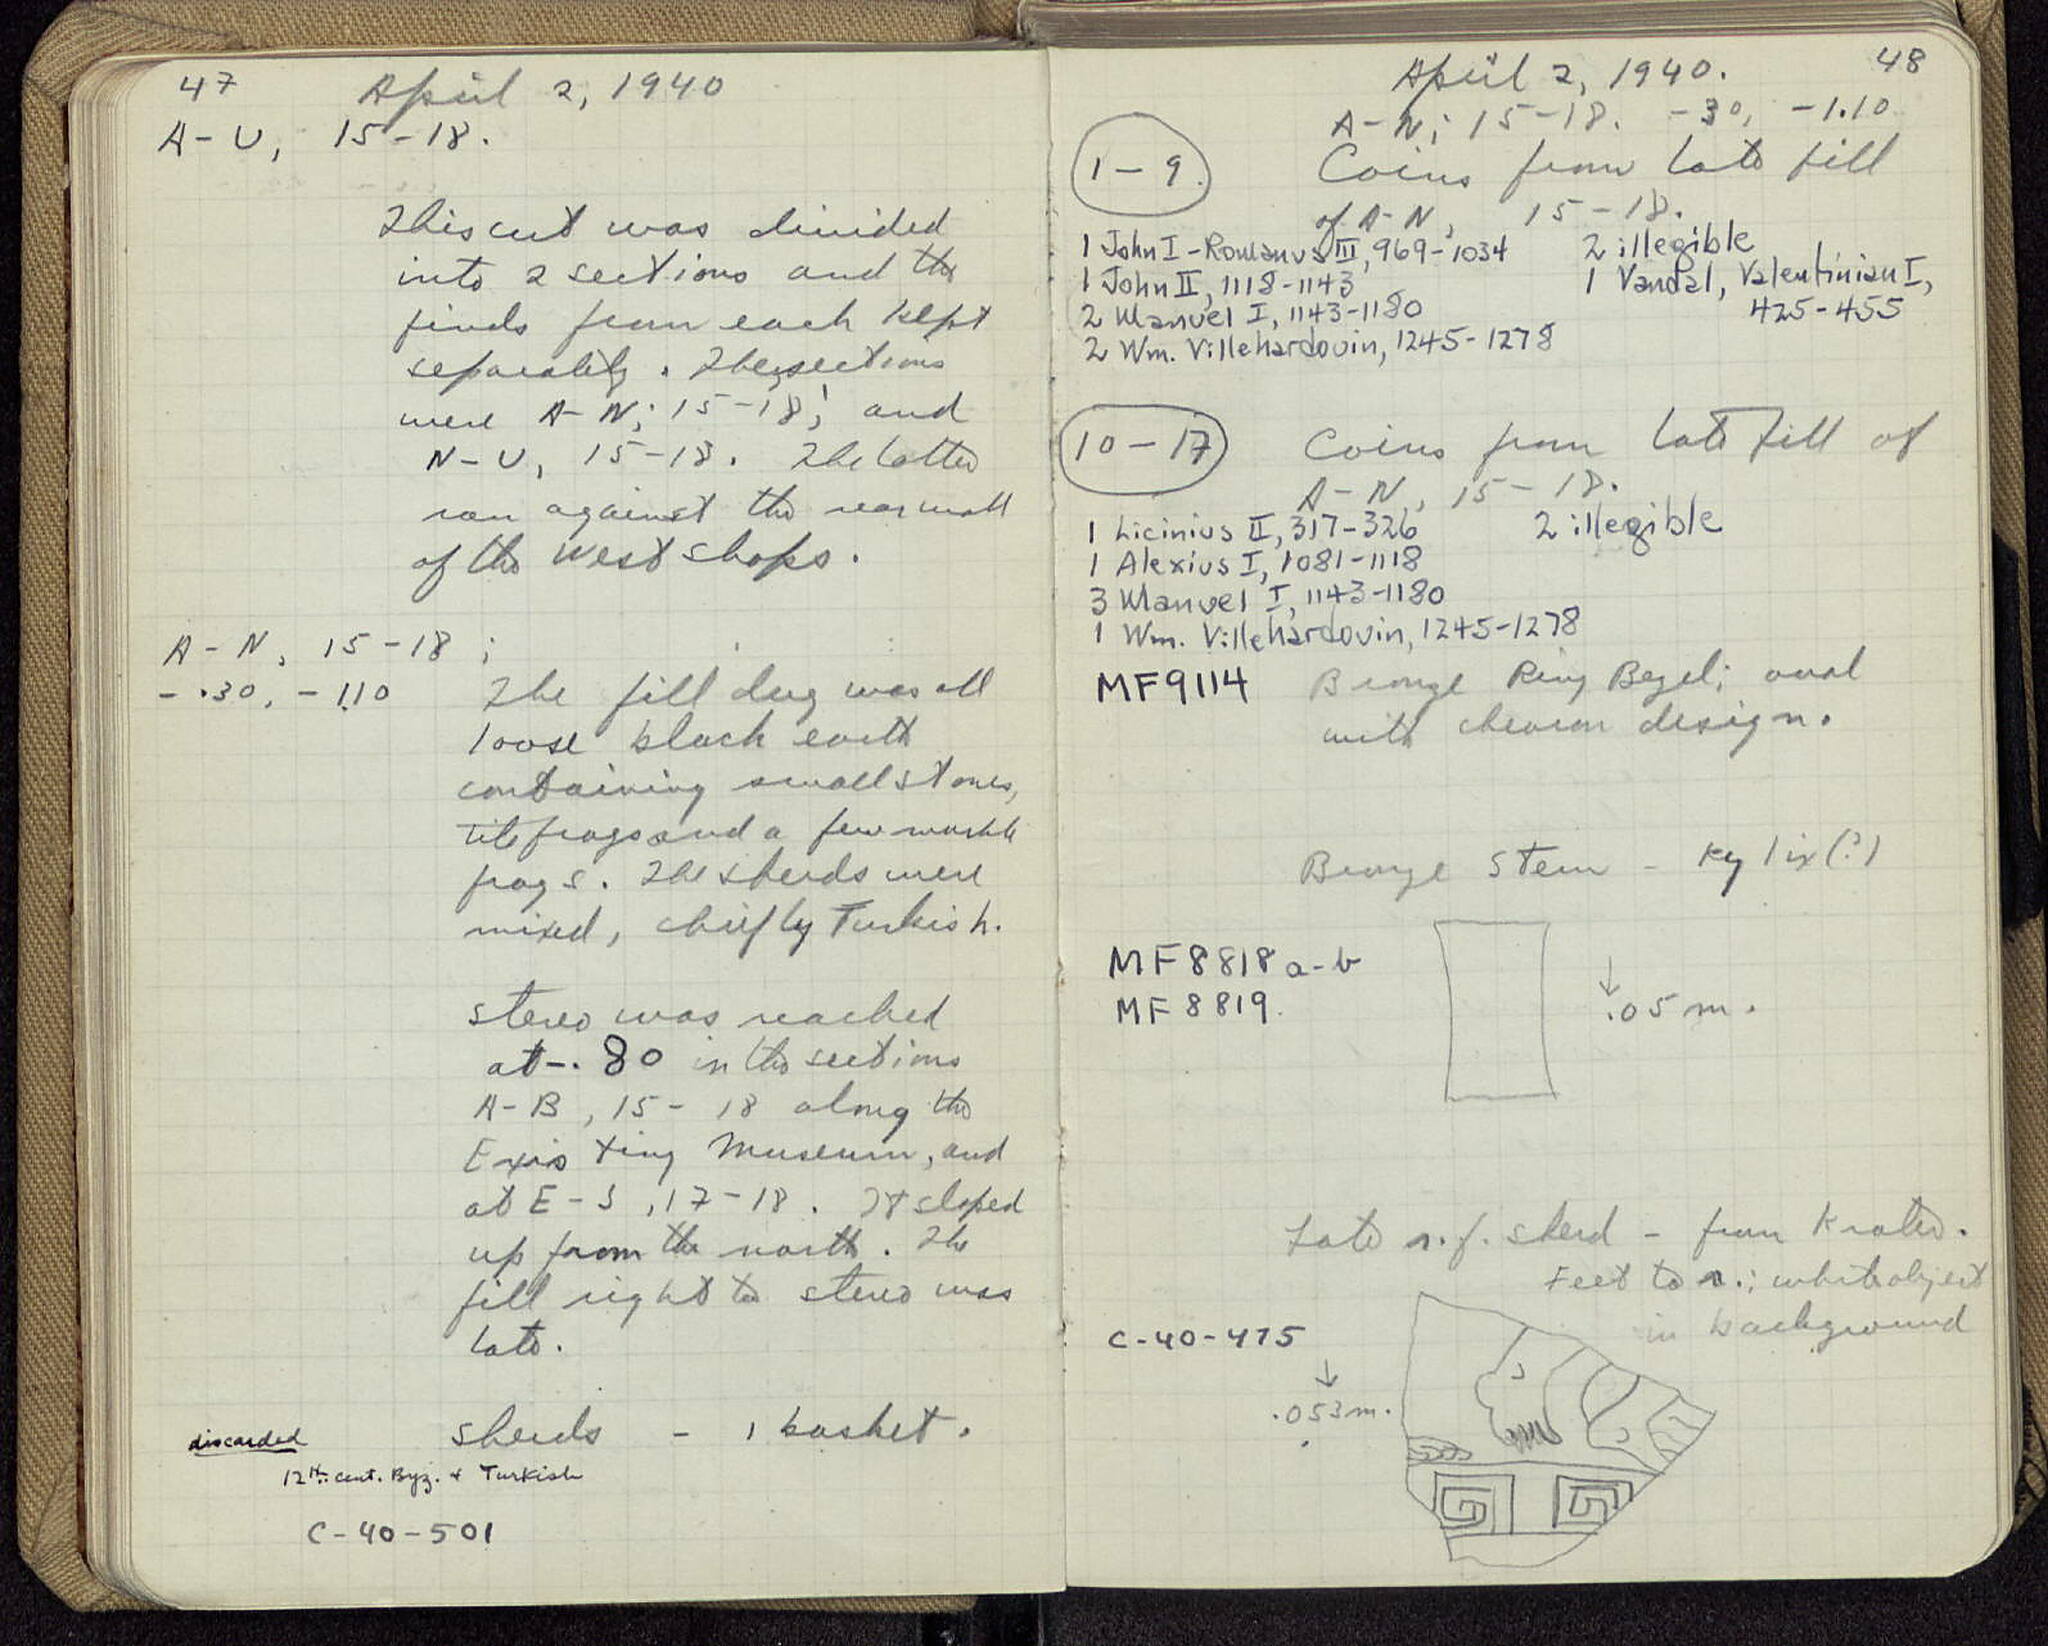 47 April 2, 1940
A-U, 15-18.
This cut was divided
into 2 sections and the
finds from each kept
separately. These sections
were A-N; 15-18; and
N-U, 15-18. The latter
ran against the rear wall
of the West shops.
A-N, 15-18;
-.30, -1.10 The fill dug was all
loose black earth
containing small stones,
tile frags and a few marble
frags. The sherds were
mixed, chiefly Turkish.
stereo was reached
at -.80 in the sections
A-B, 15-18 along the
Existing Museum, and
at E-S, 17-18. It sloped
up from the north. The
fill right to stereo was
late.
discarded sherds - 1 basket.
12th cent. Byz. + Turkish
C-40-501
April 2, 1940. 48
A-N; 15-18. -30, -1.10
1-9. Coins from late fill
of A-N, 15-18.
1 John I - Romanus III, 969-1034 2 illegible
1 John II, 1118-1143 1 Vandal, Valentinian I,
2 Manuel I, 1143-1180 425-455
2 Wm. Villehardouin, 1245-1278
10-17 Coins from late fill of
A-N, 15-18.
1 Licinius II, 317-326 2 illegible
1 Alexius I, 1081-1118
3 Manuel I, 1143-1180
1 Wm. Villehardouin, 1245-1278
MF9114 Bronze Ring Bezel; oval
with chevron design.
Bronze Stem - Kylix(?)
MF8818 a-b
MF 8819. .05 m.
Late r.f. sherd - from Krater.
Feet to r.; white object
in background
C-40-475
.053 m.